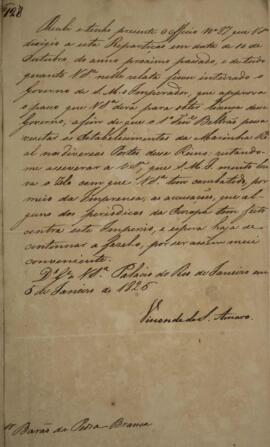 128
Recebi e tenho presente o Officio Nº 87 que V. Sª
dirigio a esta Repartição em data de 10 de
Outubro do anno proximo passado, e de tudo
quanto V. Sª nelle relata ficou inteirado o
Governo de S. M. o Imperador, que approva
o passo que V. Sª deu para obter licença desse
Governo, a fim de que o 1º Ten.e Beltrão possa
visitar os Estabelecimentos da Marinha Re-
al nos diversos Portos desse Reino, restando-
me asseverar a V. Sª, que S. M. I. muito lou-
va o zelo com que V. Sª tem combatido, por
meio da Imprensa, as accusações, que al-
guns dos periodicos da Europa tem feito
contra este Imperio, e espera haja de
continuar a fazelo, por ser assim mui
conveniente.
D.s G.e a V. Sª. Palacio do Rio de Janeiro em
5 de Janeiro de 1826
Visconde de S. Amaro.
Sr Barão da Pedra-Branca